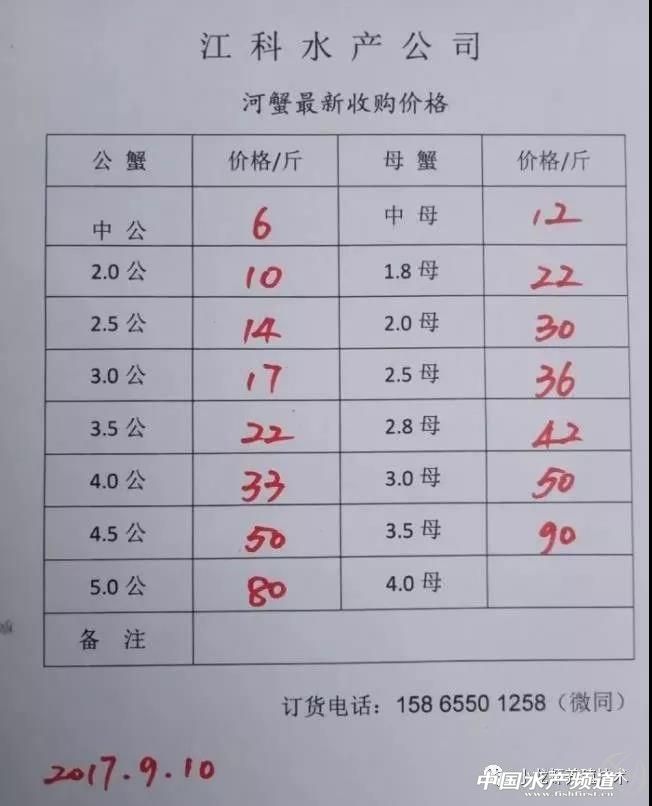 江科水产公司
河蟹最新收购价格
公蟹 价格/斤 母蟹 价格/斤
中公 6 中母 12
2.0公 10 1.8母 22
2.5公 14 2.0母 30
3.0公 17 2.5母 36
3.5公 22 2.8母 42
4.0公 33 3.0母 50
4.5公 50 3.5母 90
5.0公 80 4.0母
备注
订货电话：158 6550 1258（微同）
2017.9.10
中国水产频道
www.fishfirst.cn